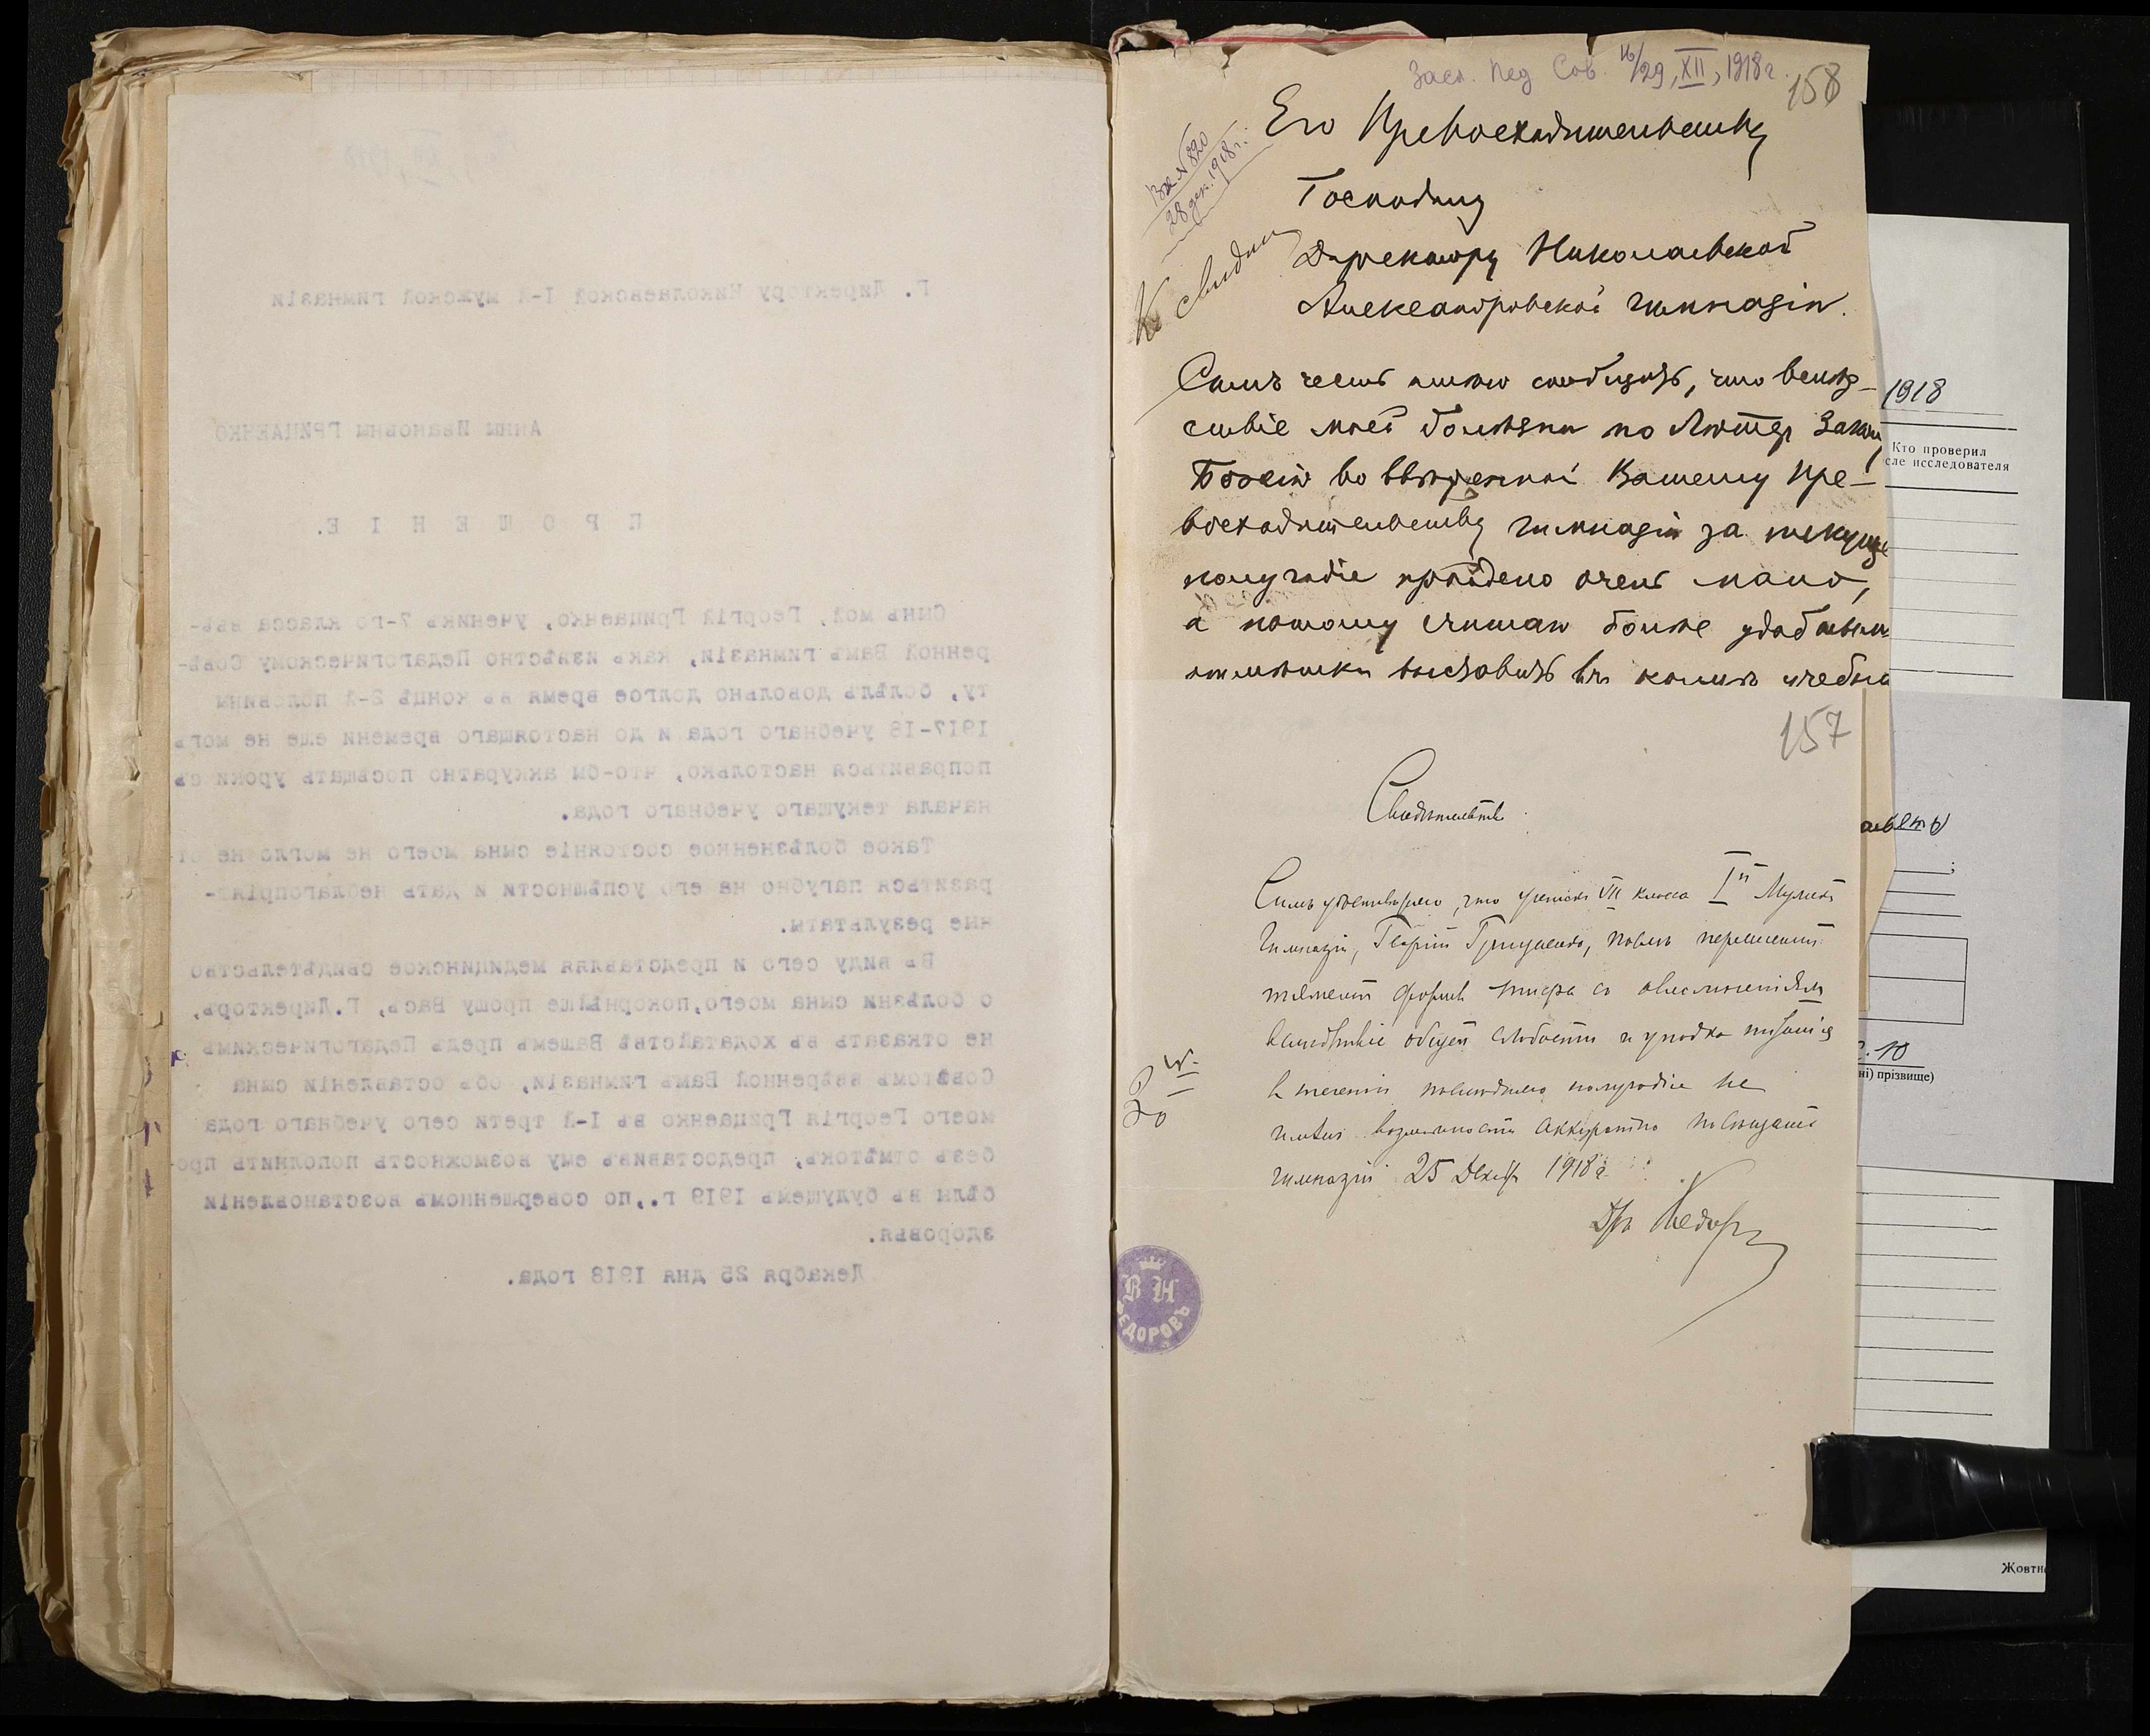 Г. Директору Николаевской I-й мужской гимназіи
Анны Ивановны ГРИЦАЕНКО
П Р О Ш Е Н І Е.
Сынъ мой, Георгій Грицаенко, ученикъ 7-го класса ввѣ-
ренной Вамъ гимназіи, какъ извѣстно Педагогическому Совѣ-
ту, болѣлъ довольно долгое время въ концѣ 2-й половины
1917-18 учебнаго года и до настоящаго времени еще не могъ
поправиться настолько, что-бы аккуратно посѣщать уроки съ
начала текущаго учебнаго года.
Такое болѣзненное состояніе сына моего не могло не от-
разиться пагубно на его успѣшности и дать неблагопріят-
ные результаты.
Въ виду сего и представляя медицинское свидѣтельство
о болѣзни сына моего, покорнѣйше прошу Васъ, Г.Директоръ,
не отказать въ ходатайствѣ Вашемъ предъ Педагогическимъ
Совѣтомъ ввѣренной Вамъ гимназіи, объ оставленіи сына
моего Георгія Грицаенко въ I-й трети сего учебнаго года
безъ отмѣтокъ, предоставивъ ему возможность пополнить про-
бѣлы въ будущемъ 1919 г., по совершенномъ возстановленіи
здоровья.
Декабря 25 дня 1918 года.
Засѣд. Пед Сов. 16/29, XII, 1918 г.
158
Вх. № 820
28 дек. 1918 г.
Его Превосходительству
Господину
Директору Николаевской
Александровской гимназіи.
Симъ честь имѣю сообщить, что вслѣд-
ствіе моей болѣзни по Закону
Божію во ввѣренной Вашему Пре-
восходительству гимназіи за текущее
полугодіе пройдено очень мало,
а потому считаю болѣе удобным
отмѣтки выставить въ концѣ учебн
157
Свидѣтельство.
Симъ удостовѣряю, что ученикъ VII класса I й Мужской
Гимназіи, Георгій Грицаенко, послѣ перенесенной
тяжелой формы тифа съ осложненіями
вслѣдствіе общей слабости и упадка питанія
въ теченіи послѣдняго полугодія не
имѣлъ возможности аккуратно посѣщать
гимназіи 25 Декабр 1918 г.
Др Федоров
В Н
ФЕДОРОВЪ
1918
Кто проверил
сле исследователя
ні) прізвище)
Жовтн